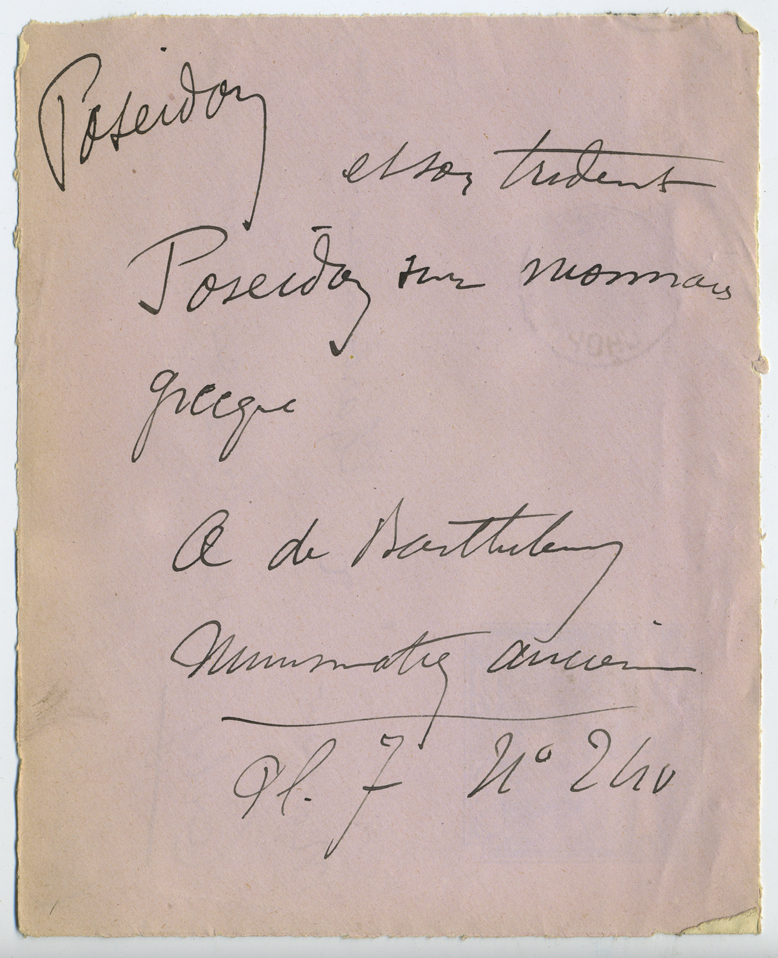 Poseidon
et son trident
Poseidon sur monnaie
grecque
A de Barthelemy
Numismatiq ancienn
Pl. 7 N° 240